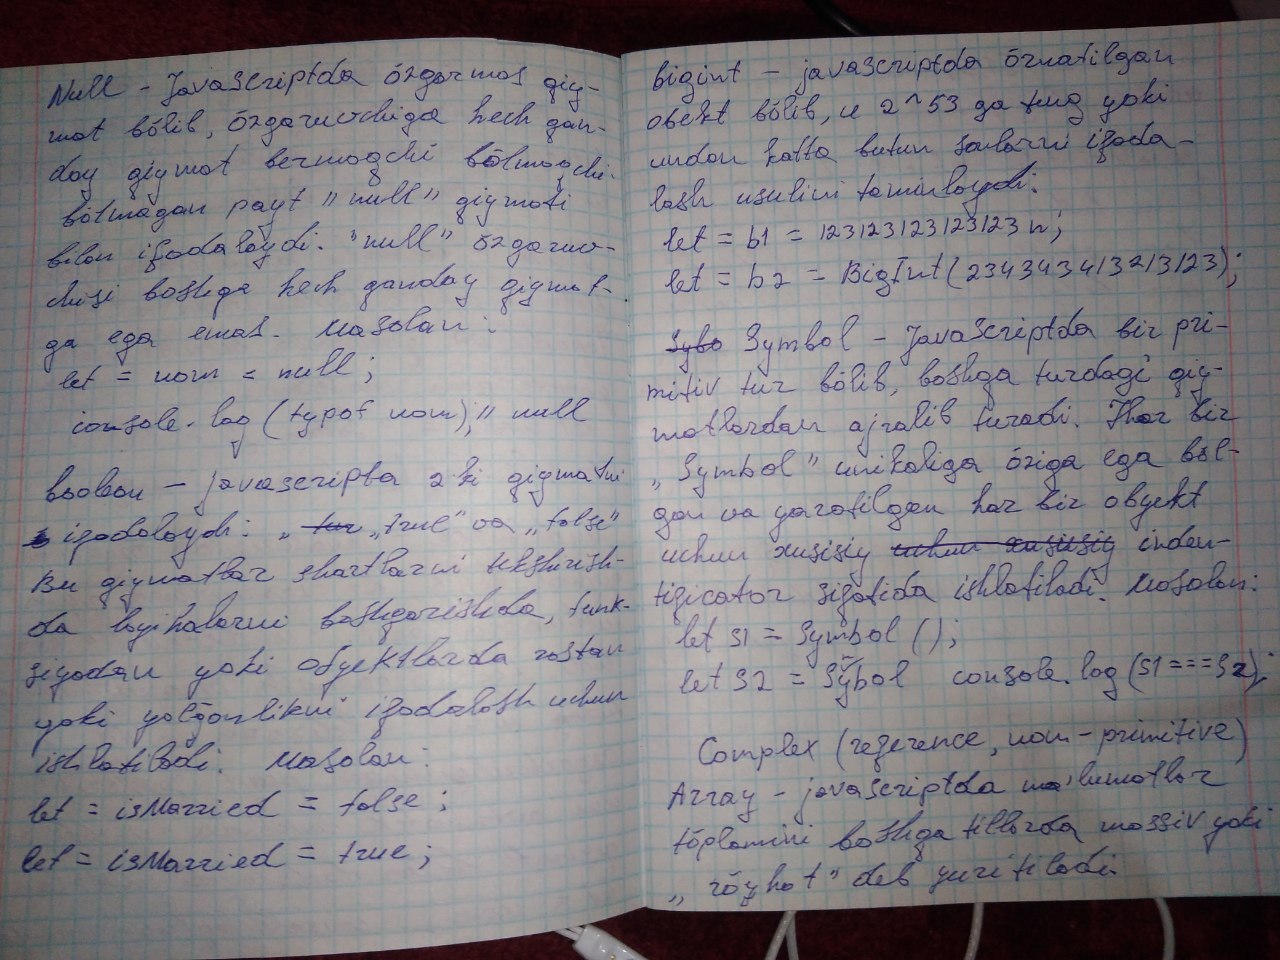 Null - JavaScriptda õzgarmas qiy-
mat bõlib, õzgaruvchiga hech qan-
day qiymat bermoqchi bõlmoqchi.
bõlmagan payt "null" qiymati
bilan ifodalaydi. "null" õzgaruv-
chisi boshqa hech qanday qiymat-
ga ega emas. Masalan:
let = nom = null;
console.log (typof nom); // null
boolean - javascripta 2 ki qiymatni
ifodalaydi: "true" va "false"
Bu qiymatlar shartlarni tekshirish-
da loyihalarni boshqarishda, funk-
siyadan yoki obyektlarda rostan
yoki yolg̃onlikni ifodalash uchun
ishlatiladi. Masalan:
let = isMarried = false;
let = isMarried = true;
bigint - javascriptda õrnatilgan
obekt bõlib, u 2^53 ga teng yoki
undan katta butun sonlarni ifoda-
lash usulini taminlaydi:
let = b1 = 123123123123123n;
let = b2 = BigInt(234343413213123);
Symbol - JavaScriptda bir pri-
mitiv tur bõlib, boshqa turdagi qiy-
matlardan ajralib turadi. Har bir
"Symbol" unikaliga õziga ega bõl-
gan va yaratilgan har bir obyekt
uchun xususiy inden-
tificator sifatida ishlatiladi. Masalan:
let s1 = Symbol ();
let s2 = Symbol console.log (s1===s2);
Complex (reference, nom-primitive)
Array - javascriptda ma'lumotlar
tõplamini boshqa tillarda massiv yoki
"rõyhat" deb yuritiladi